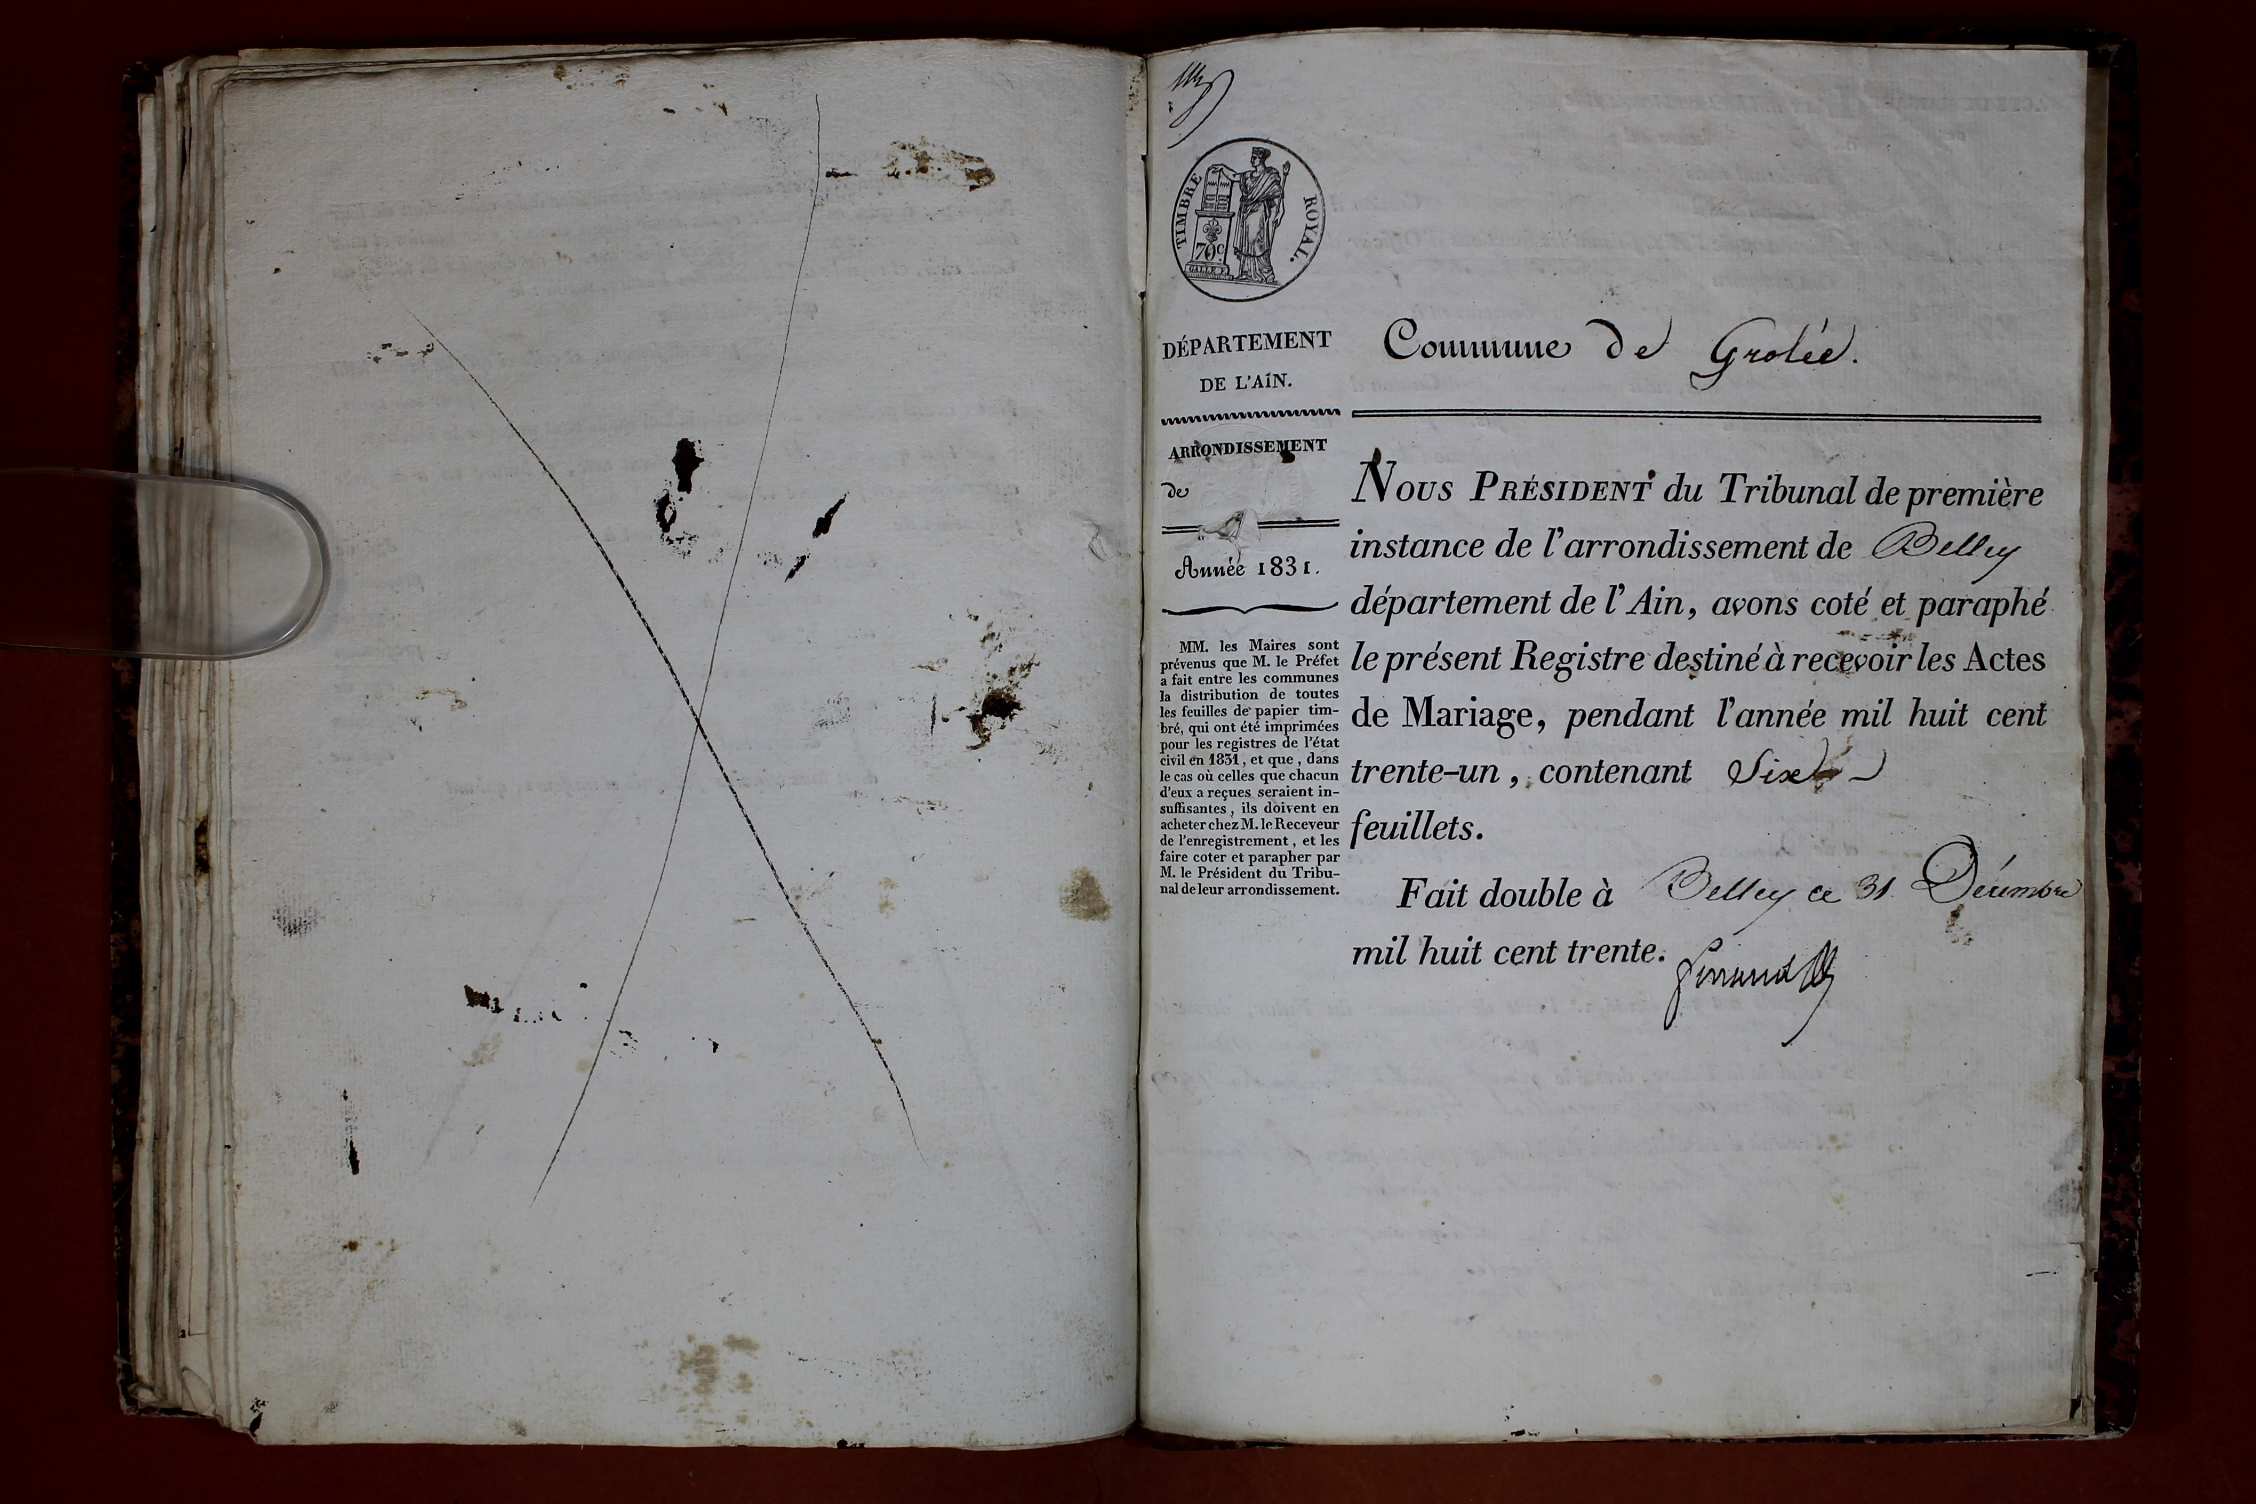 TIMBRE ROYAL.
70c.
GALLE F.
DÉPARTEMENT
DE L'AIN.
ARRONDISSEMENT
de
Année 1831.
MM. les Maires sont
prévenus que M. le Préfet
a fait entre les communes
la distribution de toutes
les feuilles de papier tim-
bré, qui ont été imprimées
pour les registres de l'état
civil en 1831, et que, dans
le cas où celles que chacun
d'eux a reçues seraient in-
suffisantes, ils doivent en
acheter chez M. le Receveur
de l'enregistrement, et les
faire coter et parapher par
M. le Président du Tribu-
nal de leur arrondissement.
Commune de Grolée.
NOUS PRÉSIDENT du Tribunal de première
instance de l'arrondissement de Belley
département de l'Ain, avons coté et paraphé
le présent Registre destiné à recevoir les Actes
de Mariage, pendant l'année mil huit cent
trente-un, contenant Six
feuillets.
Fait double à Belley ce 31 Décembre
mil huit cent trente.